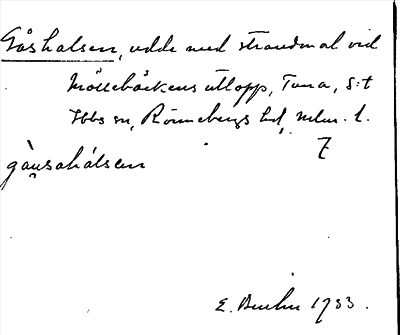 Gåshalsen, udde med strandmal vid
Möllebäckens utlopp, Tuna, S:t
Ibbs sn, Rönnebergs hd, Mlm. l.
7
gàu̯sahálsen
E. 1933.